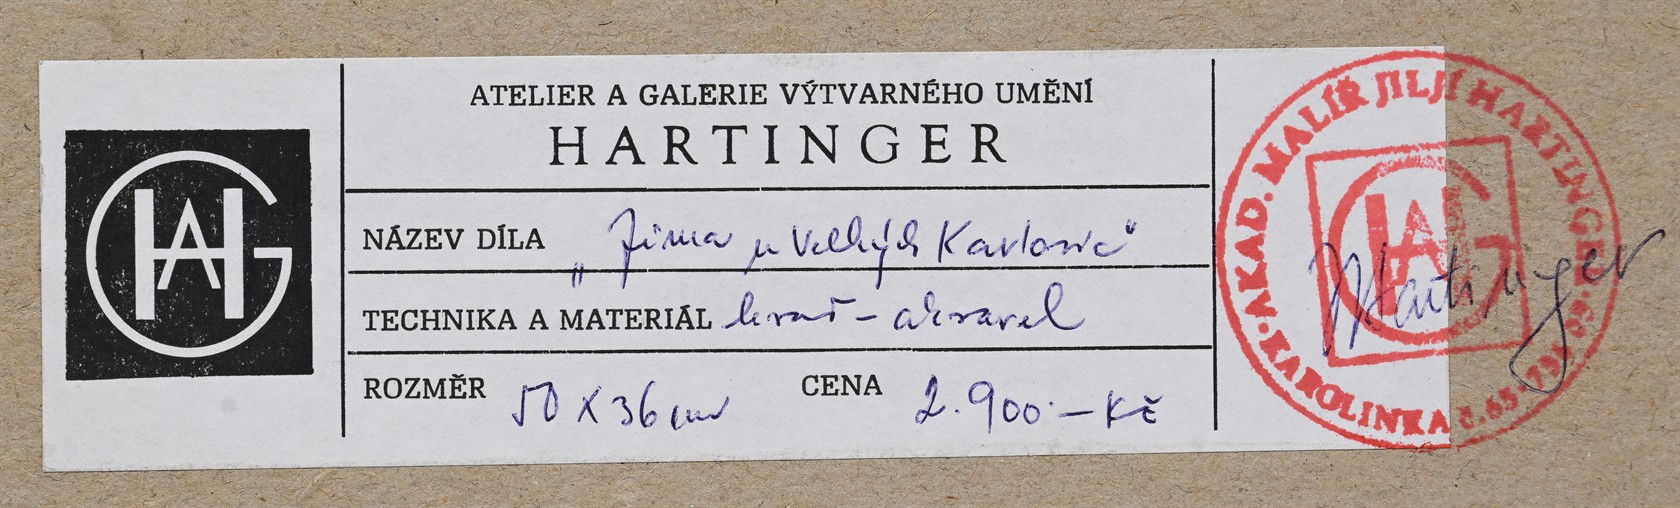 ATELIER A GALERIE VÝTVARNÉHO UMĚNÍ
HARTINGER
HAG
NÁZEV DÍLA „Zima u Velkých Karlovic“
TECHNIKA A MATERIÁL kvaš - akvarel
ROZMĚR 50 x 36 cm CENA 2.900.- Kč
AKAD. MALÍŘ JILJÍ HARTINGER
KAROLINKA č.
HAG
Hartinger